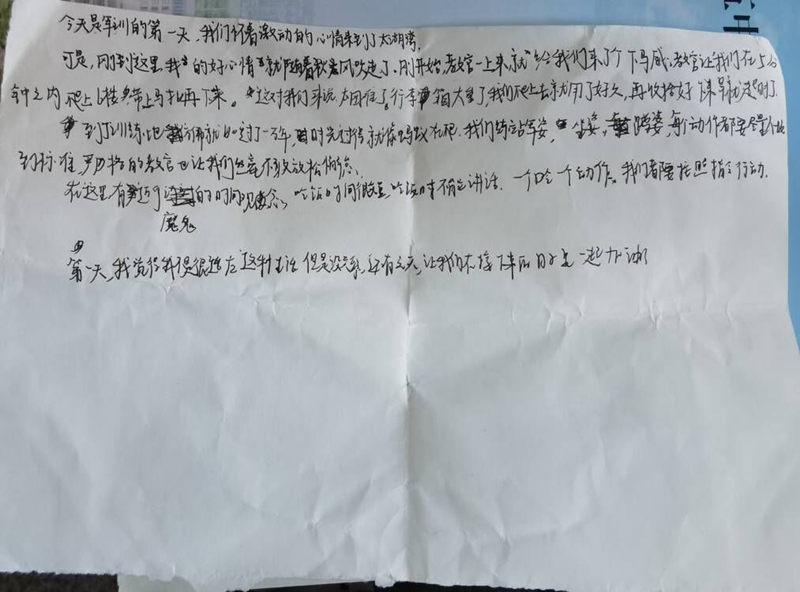 今天是军训的第一天,我们怀着激动的心情来到了太湖湾。
可是,刚到这里,我的好心情就随着秋风吹走了。刚开始,教官一上来就给我们来了个下马威。教官让我们在5分
钟之内爬上6楼带上马扎再下来。这对我们来说太困难了。行李箱太重了,我们爬上去就用了好久,再收拾好下来早就超时了。
到了训练地仿佛就如过了一万年,时光过得就像蚂蚁在爬。我们练站军姿,坐姿,蹲姿,每个动作都要尽量做
到标准,严格的教官也让我们丝毫不敢放松
在这里有时间观念,吃饭时间很短,吃饭时不能讲话。一个口令一个动作。我们都要按照指令行动。
魔鬼
第一天,我觉得我很难适应这种生活 但是没关系,还有六天,让我们在接下来的日子里一起加油